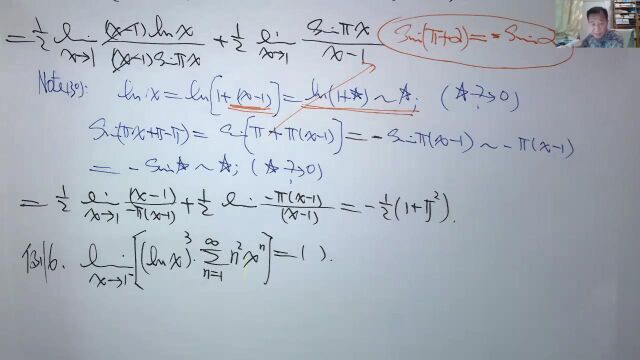 = 1/2 lim x→1 (x-1)lnx / (x-1)sinπx + 1/2 lim x→1 sinπx / x-1
sin(π+α) = -sinα
lnx = ln[1+(x-1)] = ln(1+☆) ~ ☆; (☆→0)
sin(πx+π-π) = sin[π+π(x-1)] = -sinπ(x-1) ~ -π(x-1)
= -sin☆ ~ ☆; (☆→0)
= 1/2 lim x→1 (x-1) / -π(x-1) + 1/2 lim -π(x-1) / (x-1) = -1/2(1+π²).
lim x→1⁻ [(lnx)³ · ∑ n=1 ∞ n²xⁿ] = ( ).